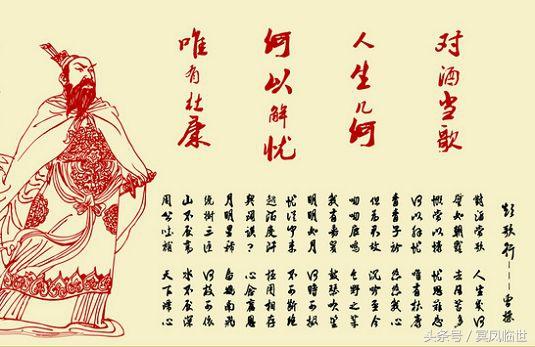 对酒当歌
人生几何
何以解忧
唯有杜康
短歌行——曹操
对酒当歌 人生几何
譬如朝露 去日苦多
慨当以慷 忧思难忘
何以解忧 唯有杜康
青青子衿 悠悠我心
但为君故 沉吟至今
呦呦鹿鸣 食野之苹
我有嘉宾 鼓瑟吹笙
明明如月 何时可掇
忧从中来 不可断绝
越陌度阡 枉用相存
契阔谈? 心念旧恩
月明星稀 乌鹊南飞
绕树三匝 何枝可依
山不厌高 水不厌深
周公吐哺 天下归心
头条号 / 冥凤临世